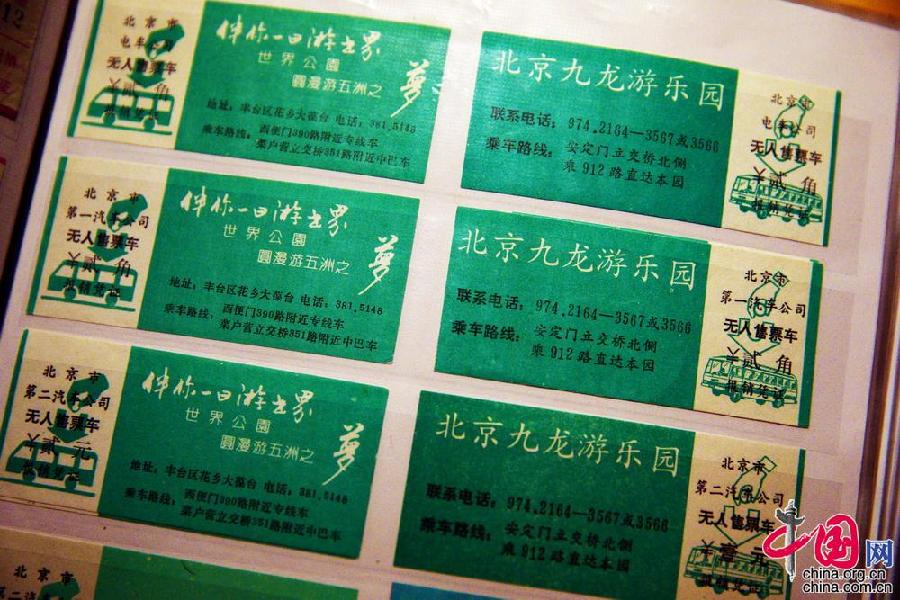 北京市
电车公司
无人售票车
￥贰角
报销凭证
伴你一日游世界
世界公园
圆漫游五洲之
梦
地址：丰台区花乡大葆台 电话：381.5148
乘车路线：西便门390路附近专线车
菜户营立交桥351路附近中巴车
北京九龙游乐园
联系电话：974.2164—3567或3566
乘车路线：安定门立交桥北侧
乘912路直达本园
北京市
电车公司
无人售票车
￥贰角
报销凭证
北京市
第一汽车公司
无人售票车
￥贰角
报销凭证
伴你一日游世界
世界公园
圆漫游五洲之
梦
地址：丰台区花乡大葆台 电话：381.5148
乘车路线：西便门390路附近专线车
菜户营立交桥351路附近中巴车
北京九龙游乐园
联系电话：974.2164—3567或3566
乘车路线：安定门立交桥北侧
乘912路直达本园
北京市
第一汽车公司
无人售票车
￥贰角
报销凭证
北京市
第二汽车公司
无人售票车
￥贰元
报销凭证
伴你一日游世界
世界公园
圆漫游五洲之
梦
地址：丰台区花乡大葆台 电话：381.5148
乘车路线：西便门390路附近专线车
菜户营立交桥351路附近中巴车
北京九龙游乐园
联系电话：974.2164—3567或3566
乘车路线：安定门立交桥北侧
乘912路直达本园
北京市
第二汽车公司
无人售票车
￥壹元
报销凭证
北京市
中国网
china.org.cn
china.com.cn